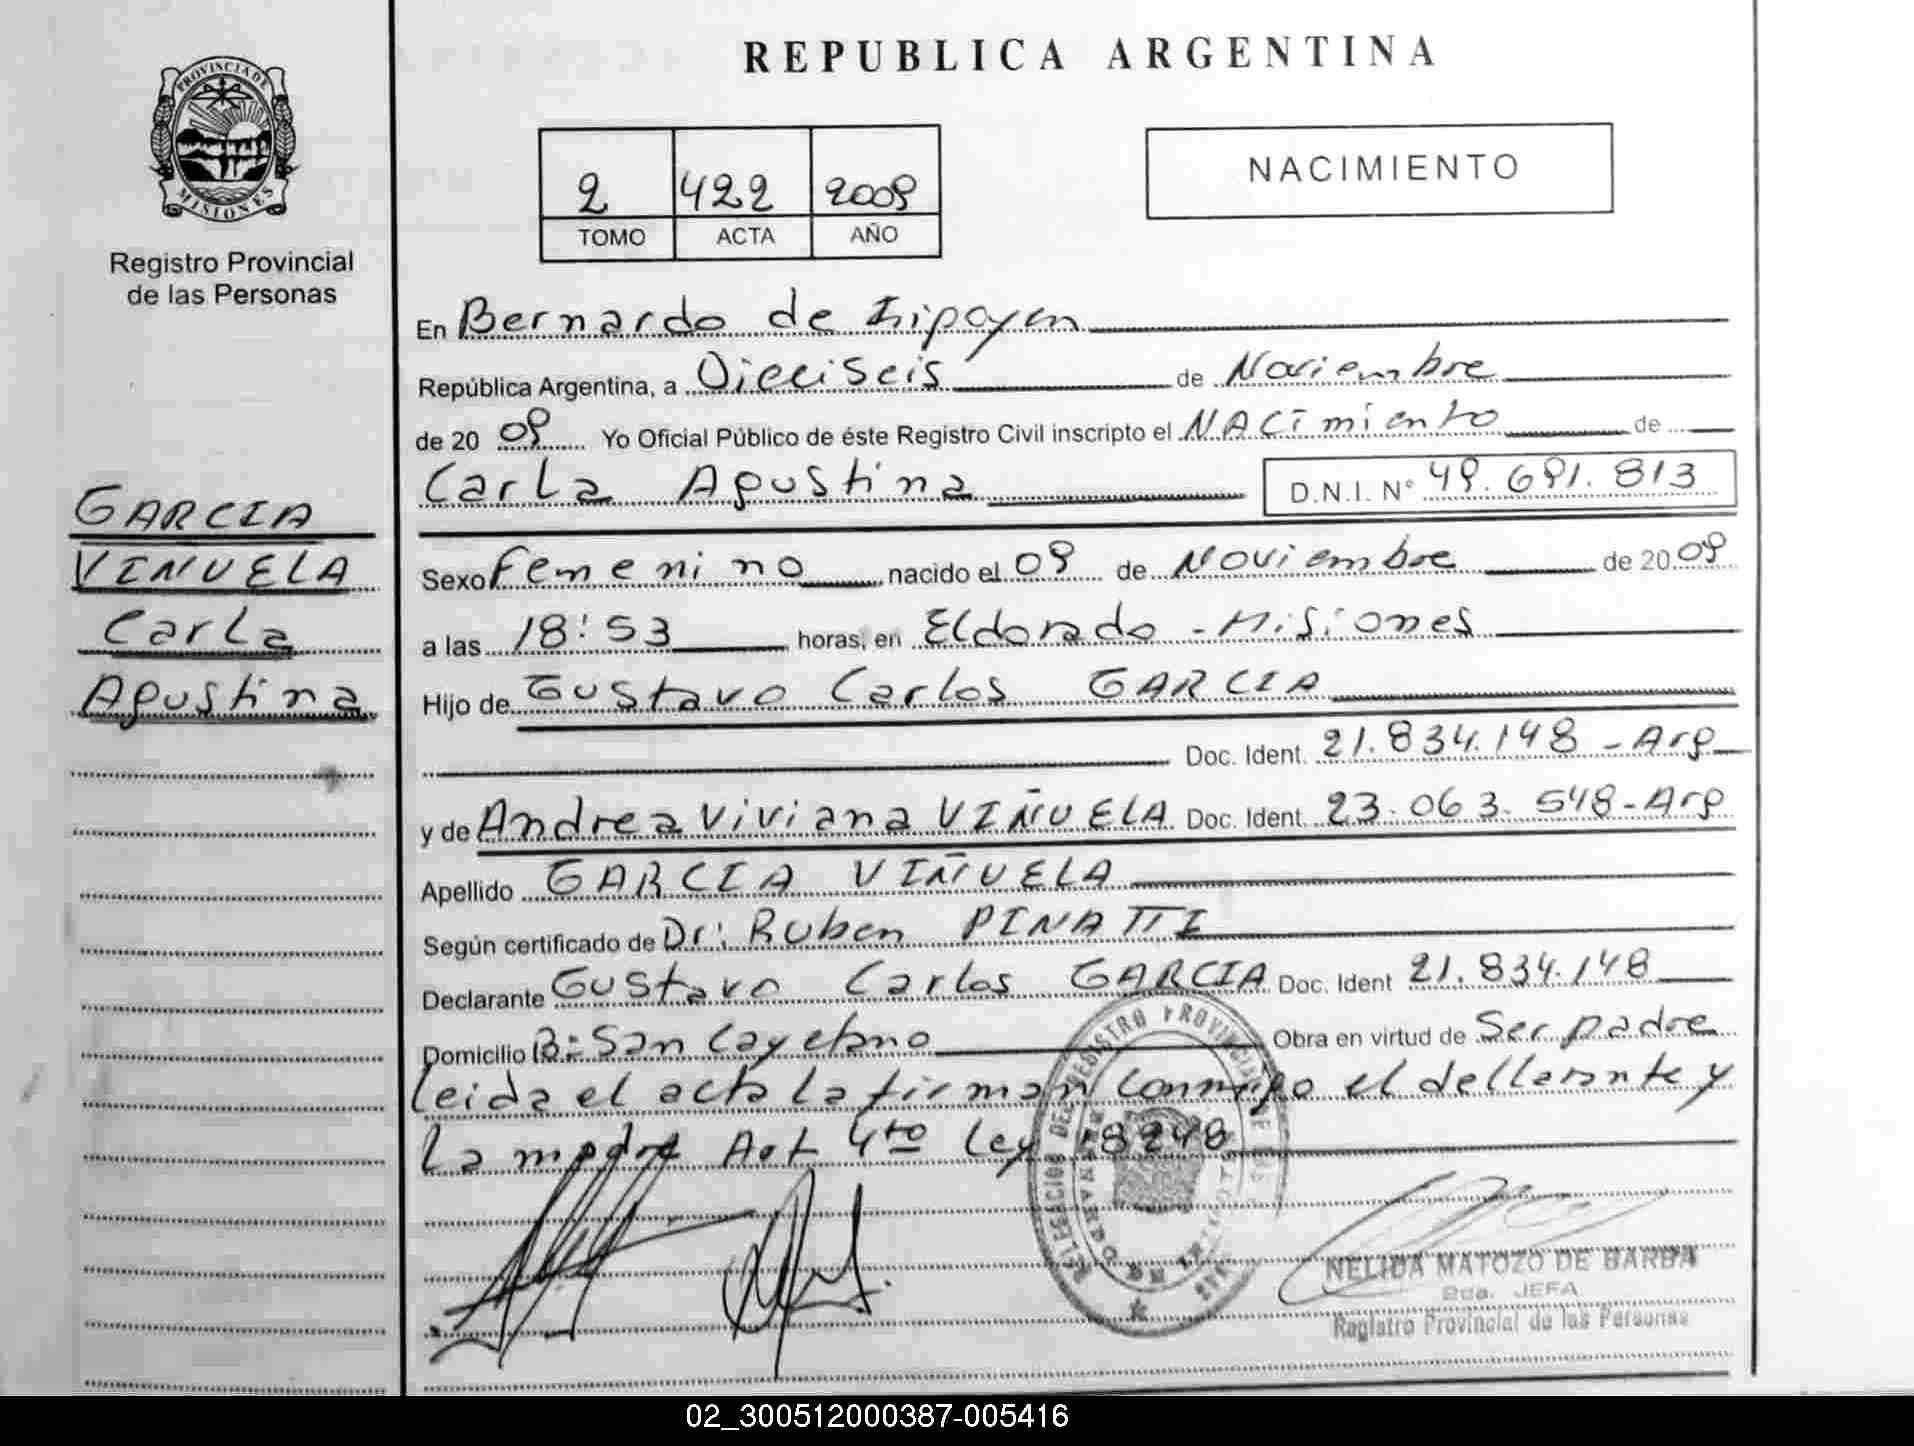 PROVINCIA DE
MISIONES
Registro Provincial
de las Personas
GARCIA
VINUELA
Carla
Agustina
REPUBLICA ARGENTINA
2 422 2009
TOMO ACTA AÑO
NACIMIENTO
En Bernardo de Irigoyen
República Argentina, a Dieciseis de Noviembre
de 20 09 Yo Oficial Público de éste Registro Civil inscripto el NACimiento de
Carla Agustina D.N.I. Nº 49.691.813
Sexo Femenino nacido el 09 de Noviembre de 20 09
a las 18:53 horas, en Eldorado - Misiones
Hijo de Gustavo Carlos GARCIA
Doc. Ident. 21.834.148 - Arg
y de Andrea Viviana VIÑUELA Doc. Ident. 23.063.548 - Arg
Apellido GARCIA VIÑUELA
Según certificado de Dr: Ruben PINATTI
Declarante Gustavo Carlos GARCIA Doc. Ident 21.834.148
Domicilio Bº San Cayetano Obra en virtud de Ser padre
Leida el acta La firman Conmigo el declarante y
La madre Art 4to Ley 18248
REGISTRO PROVINCIAL DE
NELIDA MATOZO DE BARBA
2da. JEFA
Registro Provincial de las Personas
02_300512000387-005416